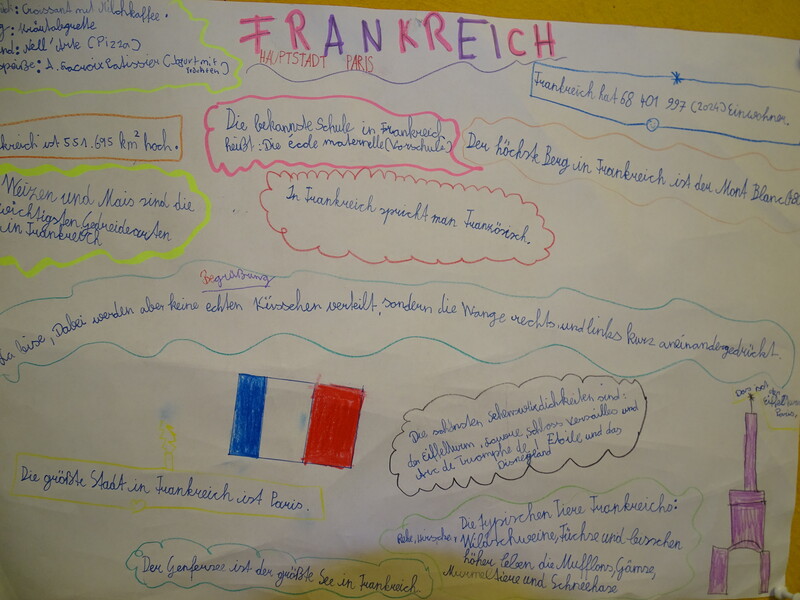 FRANKREICH
HAUPTSTADT PARIS
Croissant mit Milchkaffee.
Kräuterbaguette
Nell' Arte (Pizza)
A. Lacroix Patissier (Jogurt mit
Früchten)
Frankreich hat 68 401 997 (2024) Einwohner.
reich ist 551.695 km² hoch.
Die bekannste Schule in Frankreich
heißt: Die école maternelle (Vorschule)
Der höchste Berg in Frankreich ist der Mont Blanc
Weizen und Mais sind die
wichtigsten Getreidearten
in Frankreich
In Frankreich spricht man Französisch.
Begrüßung
La bise, Dabei werden aber keine echten Küsschen verteilt, sondern die Wange rechts und links kurz aneinandergedrückt.
Die schönsten Sehenswürdichkeiten sind:
der Eiffelturm, Louvre, Schloss Versailles und
Arc de Triomphe de l'Etoile und das
Disneyland
Das ist der
Eiffelturm
Die größte Stadt in Frankreich ist Paris.
Die typischen Tiere Frankreichs:
Rehe, Hirsche, Wildschweine, Füchse und bisschen
höher leben die Mufflons, Gämse,
Murmeltiere und Schneehase
Der Genfersee ist der größte See in Frankreich